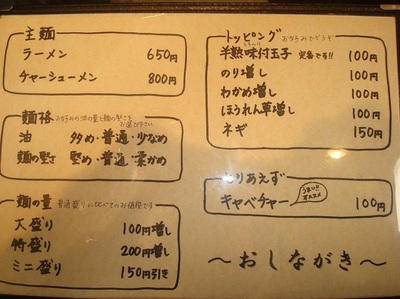 主麺
ラーメン 650円
チャーシューメン 800円
麺格 お好みの油の量と麺の堅さをお選び下さい
油 多め・普通・少なめ
麺の堅さ 堅め・普通・柔かめ
麺の量 普通盛りに比べてのお値段です
大盛り 100円増し
特盛り 200円増し
ミニ盛り 150円引き
トッピング お好みでどうぞ
半熟味付玉子 定番です!! 100円
のり増し 100円
わかめ増し 100円
ほうれん草増し 100円
ネギ 150円
とりあえず
キャベチャー 100円
～おしながき～